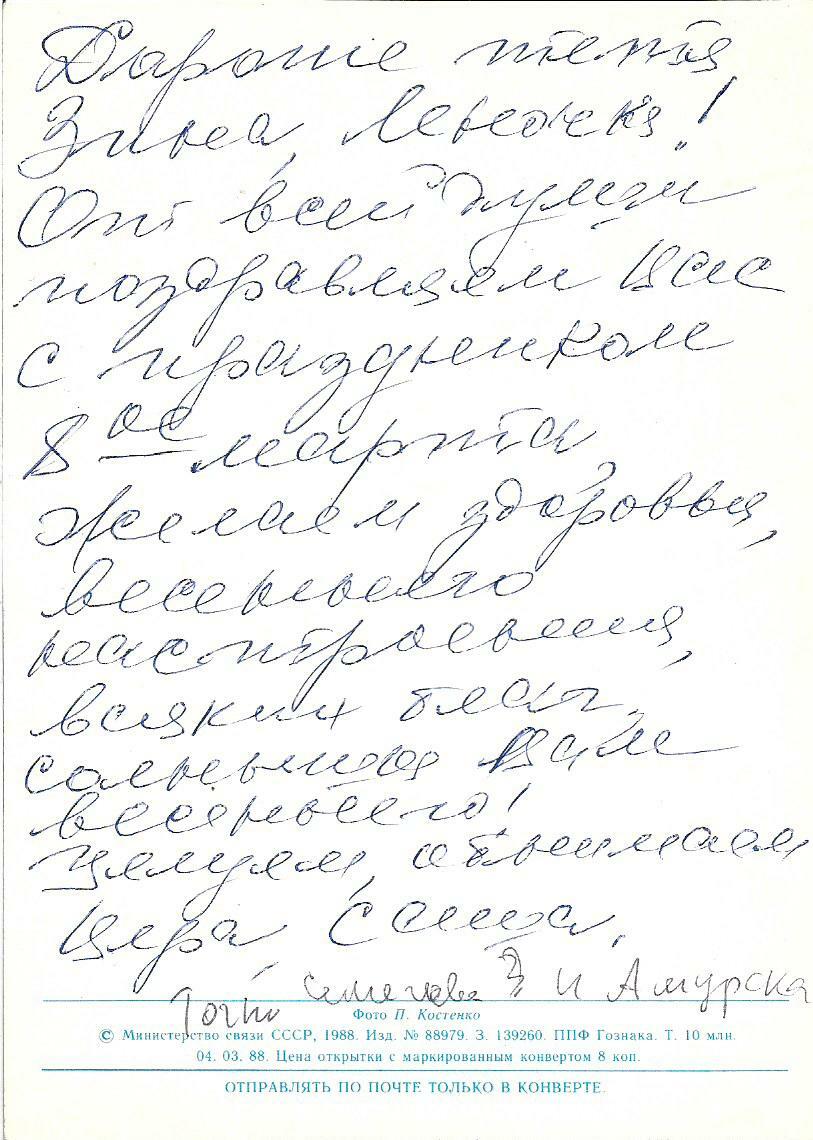 Дорогие тетя
Зина, Леночка!
От всей души
поздравляем Вас
с праздником
8ое марта,
желаем здоровья,
весеннего
настроения,
всяких благ,
солнышка Вам
весеннего!
Целуем, обнимаем
Саша.
и Амурска
Фото П. Костенко
© Министерство связи СССР, 1988. Изд. № 88979. З. 139260. ППФ Гознака. Т. 10 млн.
04. 03. 88. Цена открытки с маркированным конвертом 8 коп.
ОТПРАВЛЯТЬ ПО ПОЧТЕ ТОЛЬКО В КОНВЕРТЕ.